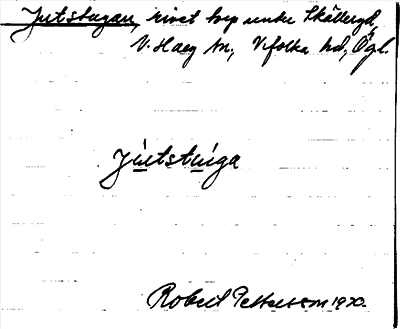 Jutstugan, rivet torp under Skällergd,
V. Haeg sn, Vifolka hd, Ögl.
Jutstuga
Robert Pettersson 1970.